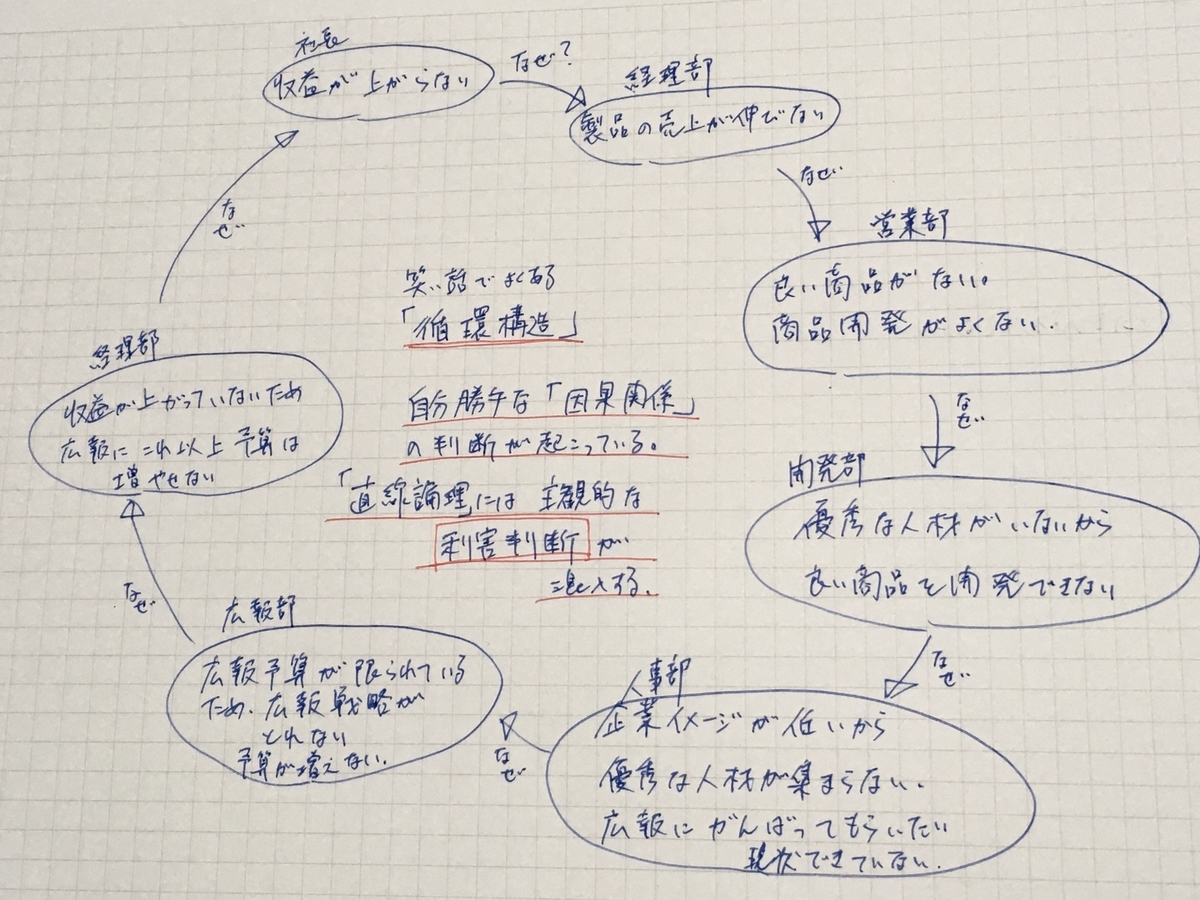 社長
収益が上がらない
なぜ?
経理部
製品の売上が伸びない
なぜ
営業部
良い商品がない。
商品開発がよくない.
なぜ
開発部
優秀な人材がいないから
良い商品を開発できない
なぜ
人事部
企業イメージが低いから
優秀な人材が集まらない.
広報にがんばってもらいたい
現状できていない.
なぜ
広報部
広報予算が限られている
ため、広報戦略が
とれない
予算が増えない.
なぜ
経理部
収益が上がっていないため
広報にこれ以上予算は
増やせない
なぜ
笑い話でよくある
「循環構造」
自分勝手な「因果関係」
の判断が起こっている。
「直線論理」には主観的な
利害判断が
混入する.